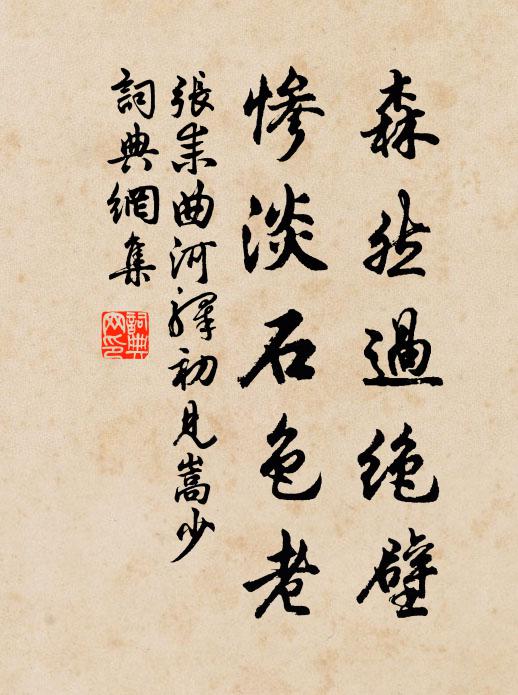 森然過絶壁
慘淡石色老
張耒曲河驛初見嵩少
詞典網集
詞典網印